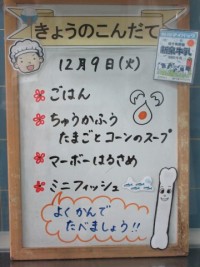 きょうのこんだて
12月9日(火)
ごはん
ちゅうかふう
たまごとコーンのスープ
マーボーはるさめ
ミニフィッシュ
よくかんで
たべましょう!!